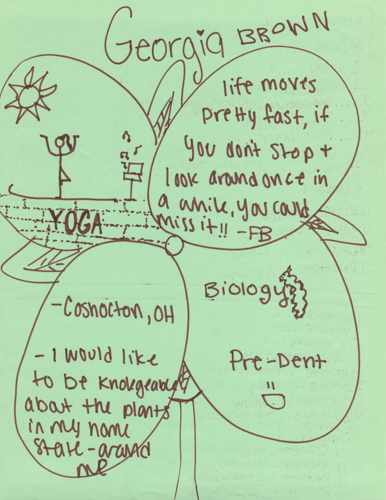 Georgia BROWN
life moves
pretty fast, if
you don't stop +
look around once in
a while, you could
miss it!! -FB
YOGA
Biology
Pre-Dent
-Coshocton, OH
- I would like
to be knolegeable
about the plants
in my home
state - around
me